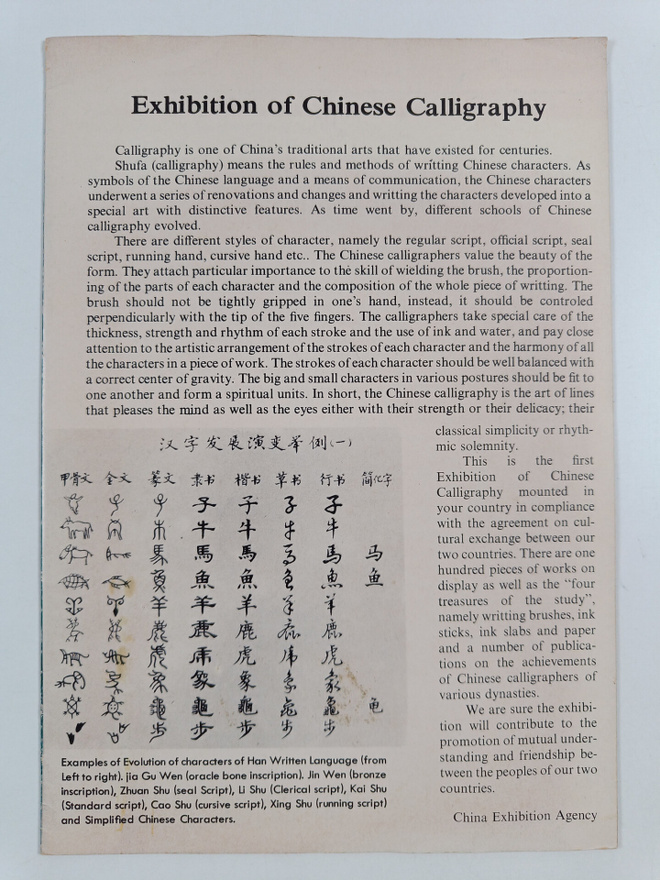 Exhibition of Chinese Calligraphy
Calligraphy is one of China's traditional arts that have existed for centuries.
Shufa (calligraphy) means the rules and methods of writting Chinese characters. As
symbols of the Chinese language and a means of communication, the Chinese characters
underwent a series of renovations and changes and writting the characters developed into a
special art with distinctive features. As time went by, different schools of Chinese
calligraphy evolved.
There are different styles of character, namely the regular script, official script, seal
script, running hand, cursive hand etc.. The Chinese calligraphers value the beauty of the
form. They attach particular importance to the skill of wielding the brush, the proportion-
ing of the parts of each character and the composition of the whole piece of writting. The
brush should not be tightly gripped in one's hand, instead, it should be controled
perpendicularly with the tip of the five fingers. The calligraphers take special care of the
thickness, strength and rhythm of each stroke and the use of ink and water, and pay close
attention to the artistic arrangement of the strokes of each character and the harmony of all
the characters in a piece of work. The strokes of each character should be well balanced with
a correct center of gravity. The big and small characters in various postures should be fit to
one another and form a spiritual units. In short, the Chinese calligraphy is the art of lines
that pleases the mind as well as the eyes either with their strength or their delicacy; their
classical simplicity or rhyth-
mic solemnity.
This is the first
Exhibition of Chinese
Calligraphy mounted in
your country in compliance
with the agreement on cul-
tural exchange between our
two countries. There are one
hundred pieces of works on
display as well as the "four
treasures of the study",
namely writting brushes, ink
sticks, ink slabs and paper
and a number of publica-
tions on the achievements
of Chinese calligraphers of
various dynasties.
We are sure the exhibi-
tion will contribute to the
promotion of mutual under-
standing and friendship be-
tween the peoples of our two
countries.
China Exhibition Agency
汉字发展演变举例(一)
甲骨文 金文 篆文 隶书 楷书 草书 行书 简化字
子 子 子 子
牛 牛 牛 牛
馬 馬 馬 馬 马
魚 魚 魚 魚 鱼
羊 羊 羊 羊 羊
鹿 鹿 鹿 鹿
虎 虎 虎 虎
象 象 象 象
龜 龜 龜 龜 龟
步 步 步 步
Examples of Evolution of characters of Han Written Language (from
Left to right). jia Gu Wen (oracle bone inscription). Jin Wen (bronze
inscription), Zhuan Shu (seal Script), Li Shu (Clerical script), Kai Shu
(Standard script), Cao Shu (cursive script), Xing Shu (running script)
and Simplified Chinese Characters.